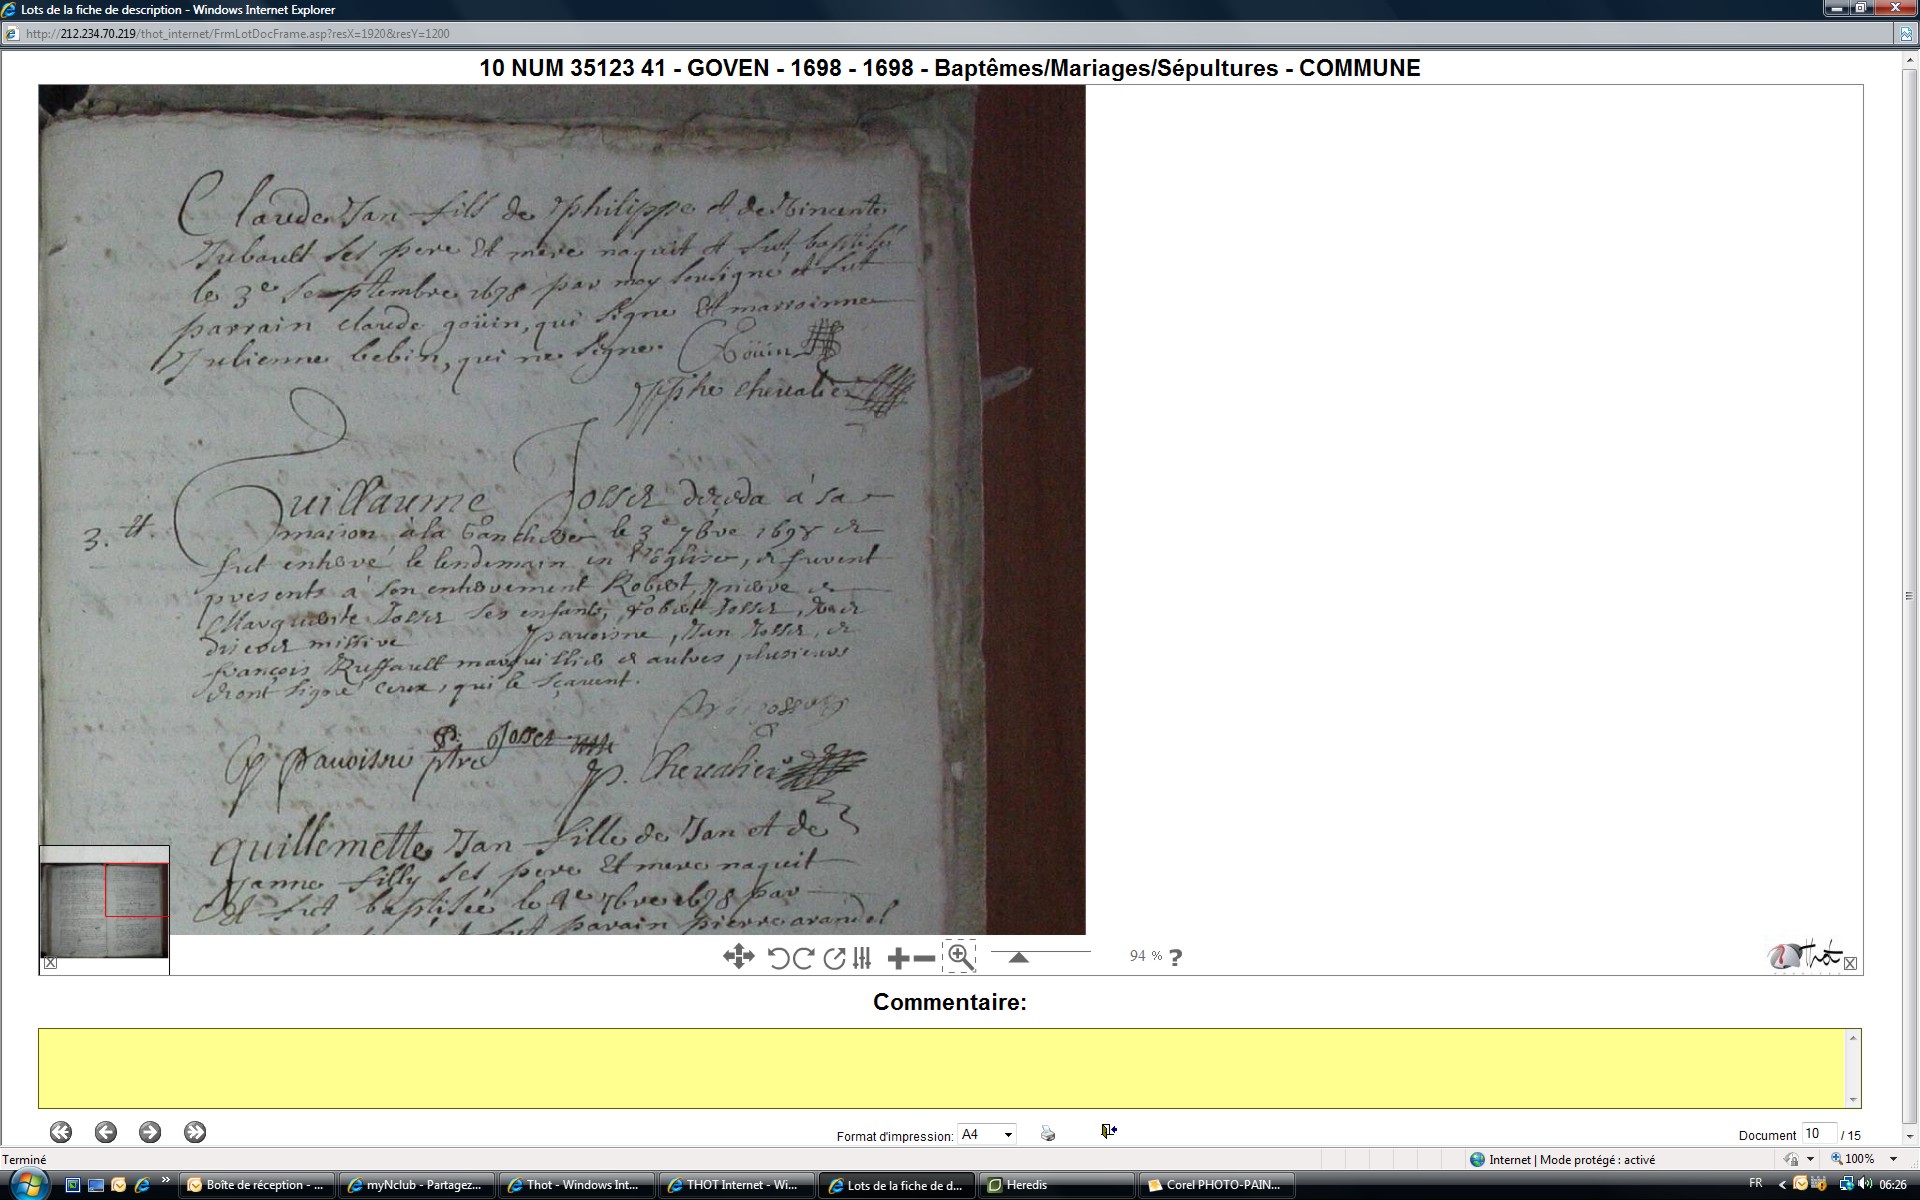 Lots de la fiche de description - Windows Internet Explorer
http://212.234.70.219/thot_internet/FrmLotDocFrame.asp?resX=1920&resY=1200
10 NUM 35123 41 - GOVEN - 1698 - 1698 - Baptêmes/Mariages/Sépultures - COMMUNE
Claude Jan fils de Philippe et de Vincente
Tubault ses pere Et mere naquit et fut baptisé
le 3e Septembre 1698 par moy sousigné et fut
parrain claude goüin, qui signe Et marroinne
Julienne bebin, qui ne signe. Goüin
Chevalier
Guillaume Josses déceda à sa
3. tt.
maison à la le 3e 7bre 1698 et
fut enterré le lendemain en l'Eglise, et furent
presents à son enterrement Robert, pierre et
Marguerite Josses ses enfants, Robert Josses,
missire pavoisne, Jan Josses, et
françois Ruffault marguilliers et autres plusieurs
dront signé ceux, qui le sçavent.
pavoisne ptre Josses
p. Chevalier
guillemette Jan fille de Jan et de
Janne filly ses pere Et mere naquit
Et fut baptisée le 7bre 1698 par
fut parain pierre
94 %
?
Thot
Commentaire:
Format d'impression: A4
Document 10 / 15
Terminé
Internet | Mode protégé : activé
100%
Boîte de réception - ...
myNclub - Partagez...
Thot - Windows Int...
THOT Internet - Wi...
Lots de la fiche de d...
Heredis
Corel PHOTO-PAIN...
FR
06:26